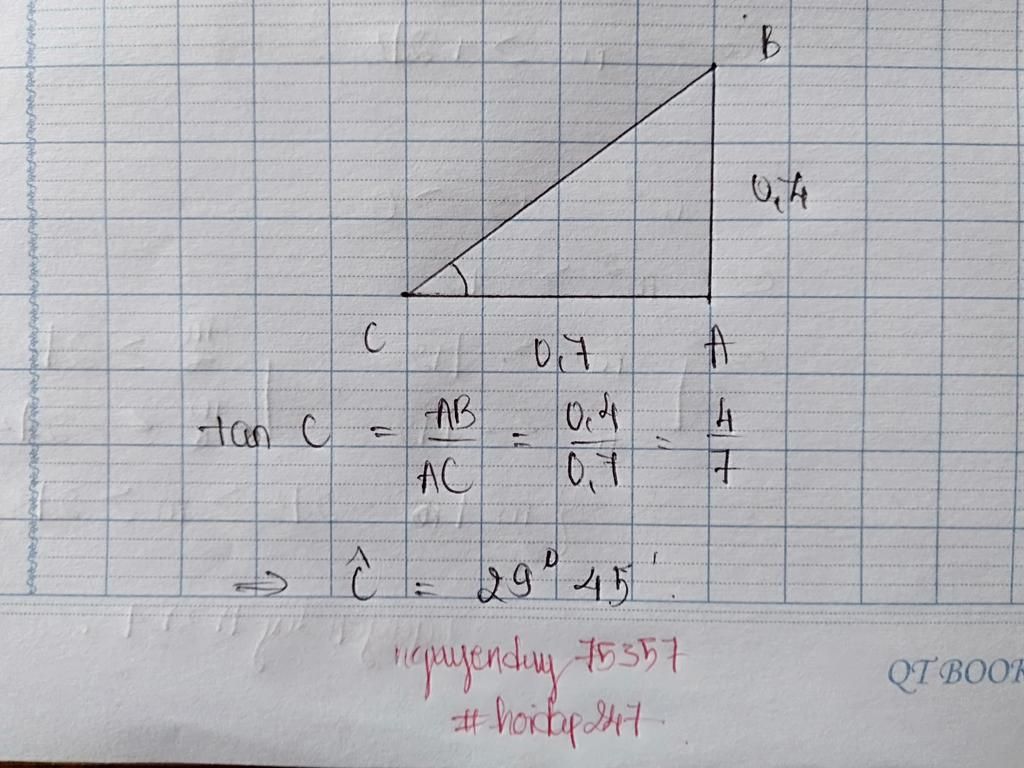 B
0,4
C 0,7 A
tan C = AB/AC = 0,4/0,7 = 4/7
⇒ Ĉ = 29° 45'.
nguyenduy 75357
#hoidap247
QT BOOK